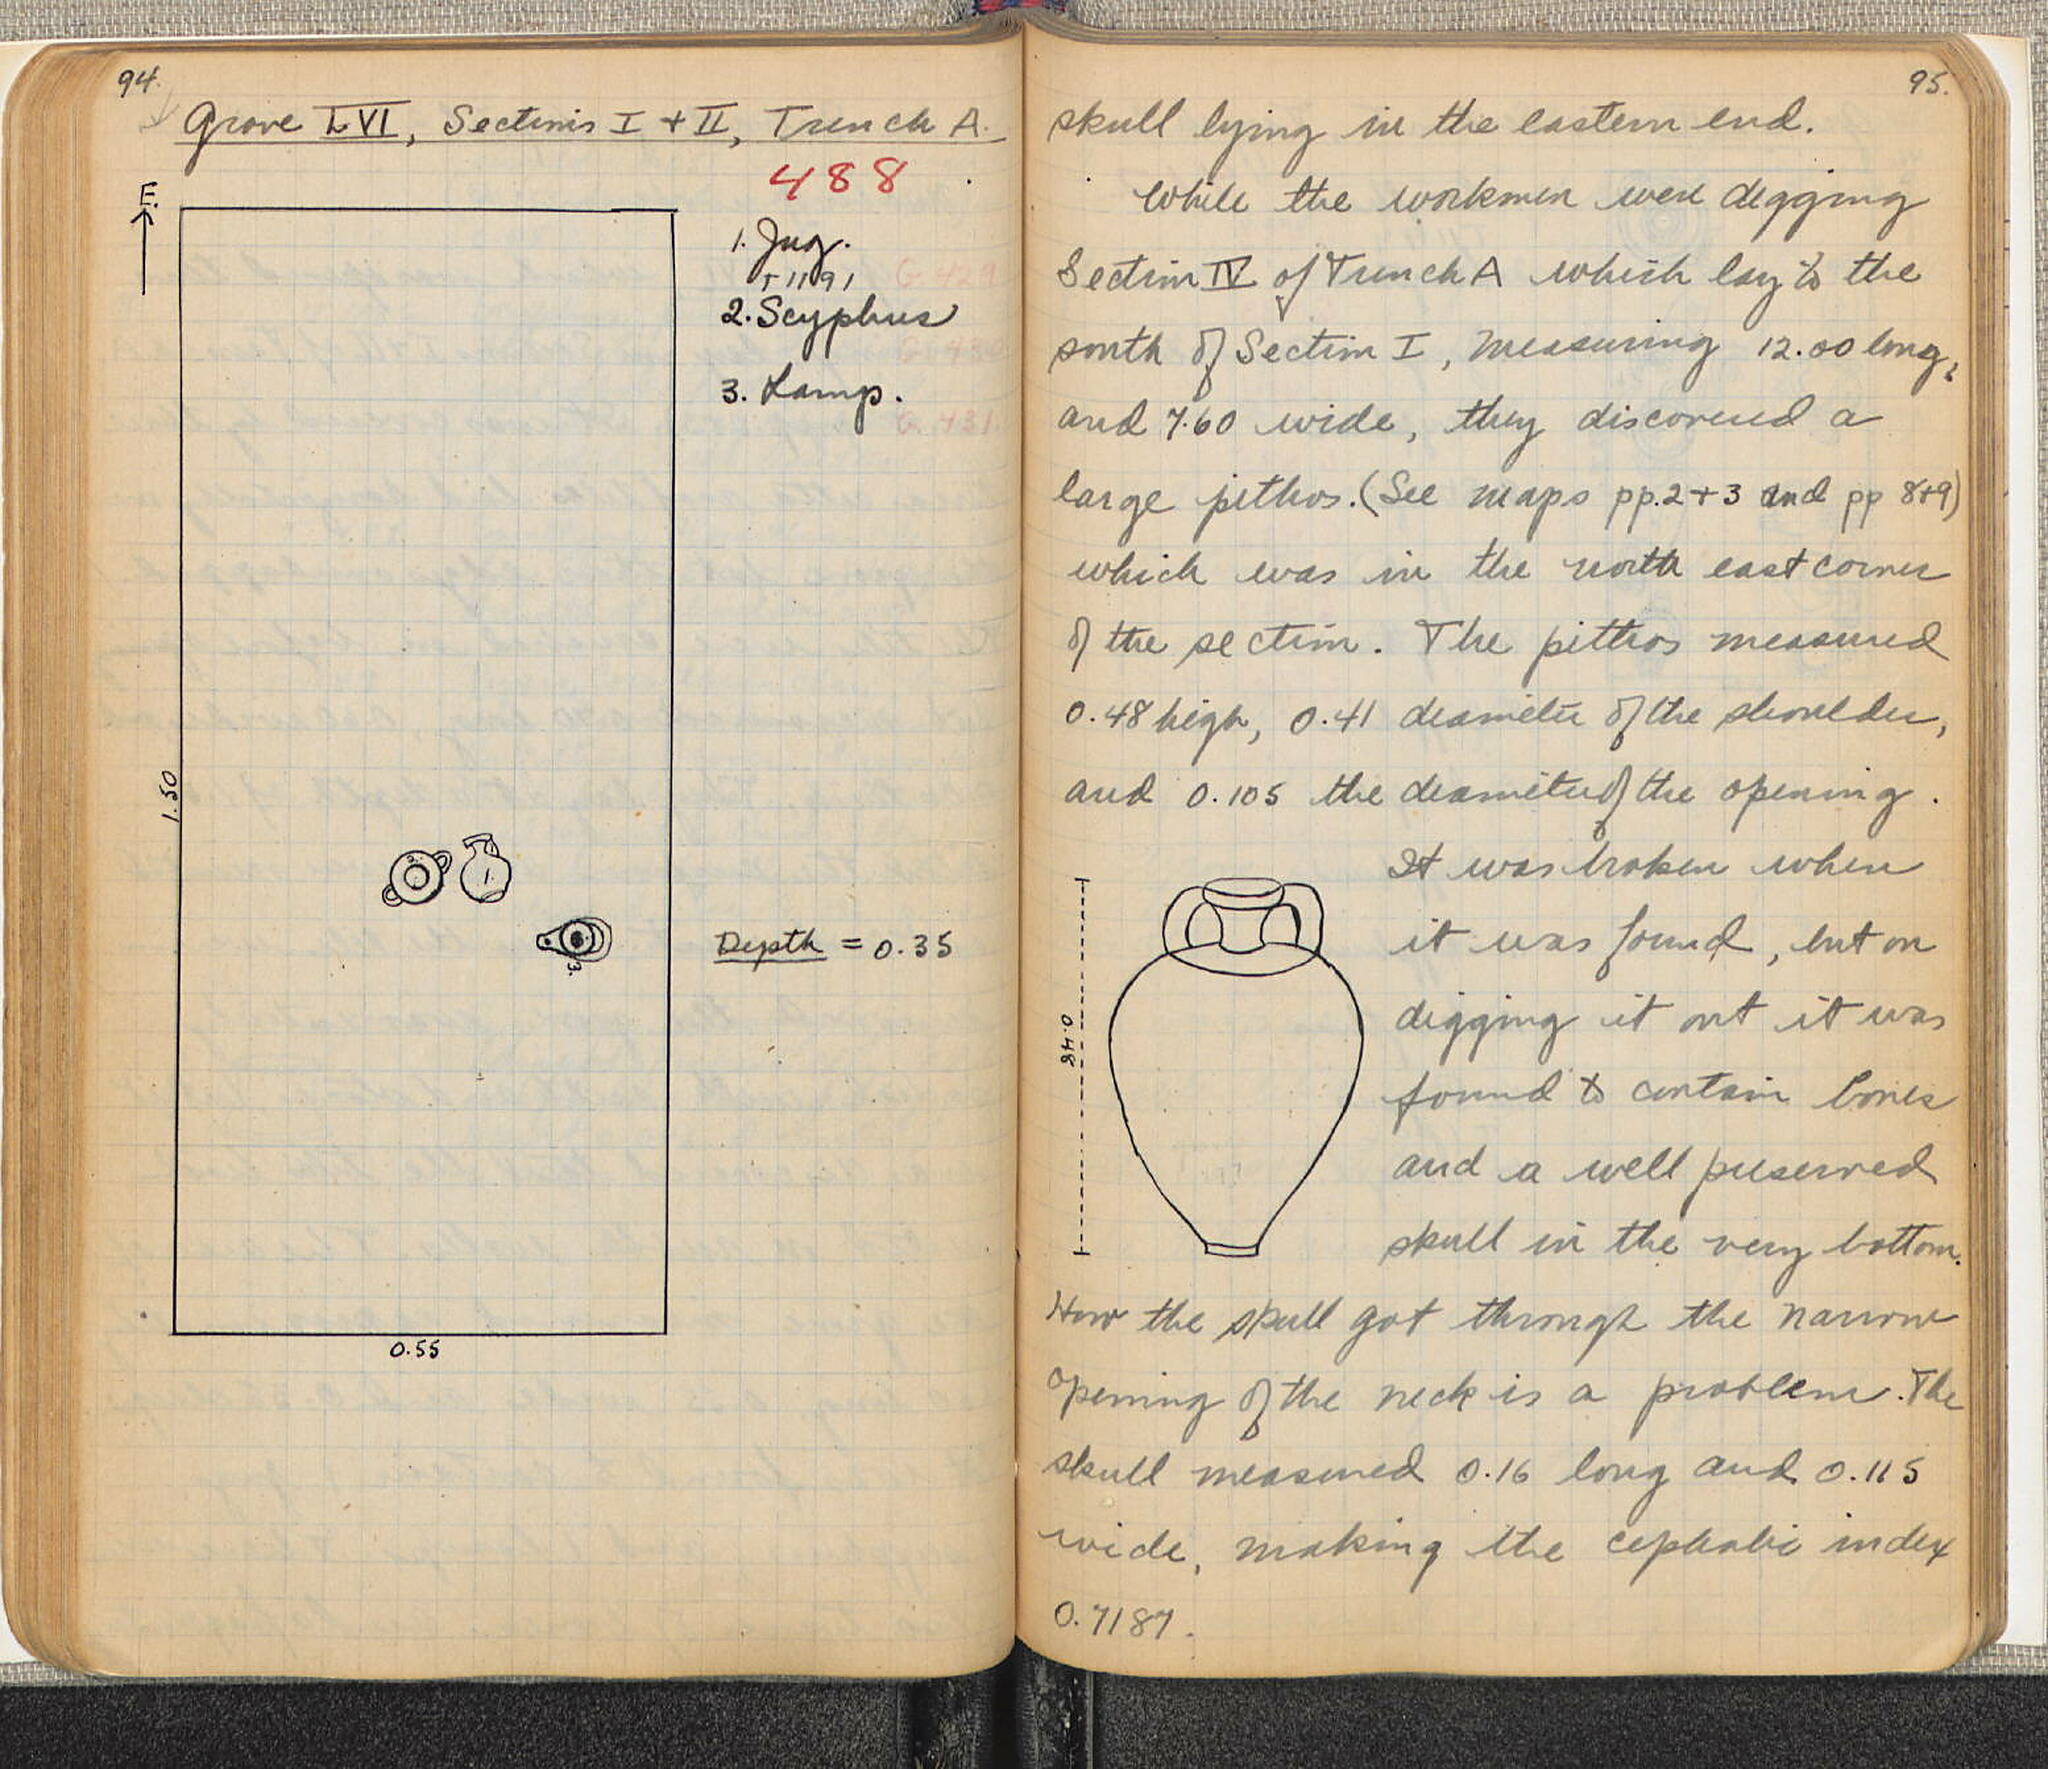 94.
Grave LVI, Sections I + II, Trench A.
488
E.
1. Jug.
T 1191
2. Scyphus
3. Lamp.
1.50
2.
1.
3.
Depth = 0.35
0.55
95.
skull lying in the eastern end.
While the workmen were digging
Section IV of Trench A which lay to the
south of Section I, measuring 12.00 long,
and 7.60 wide, they discovered a
large pithos. (See maps pp. 2 + 3 and pp 8+9)
which was in the north east corner
of the section. The pithos measured
0.48 high, 0.41 diameter of the shoulder,
and 0.105 the diameter of the opening.
It was broken when
it was found, but on
digging it out it was
found to contain bones
and a well preserved
skull in the very bottom.
0.48
How the skull got through the narrow
opening of the neck is a problem. The
skull measured 0.16 long and 0.115
wide, making the cephalic index
0.7187.